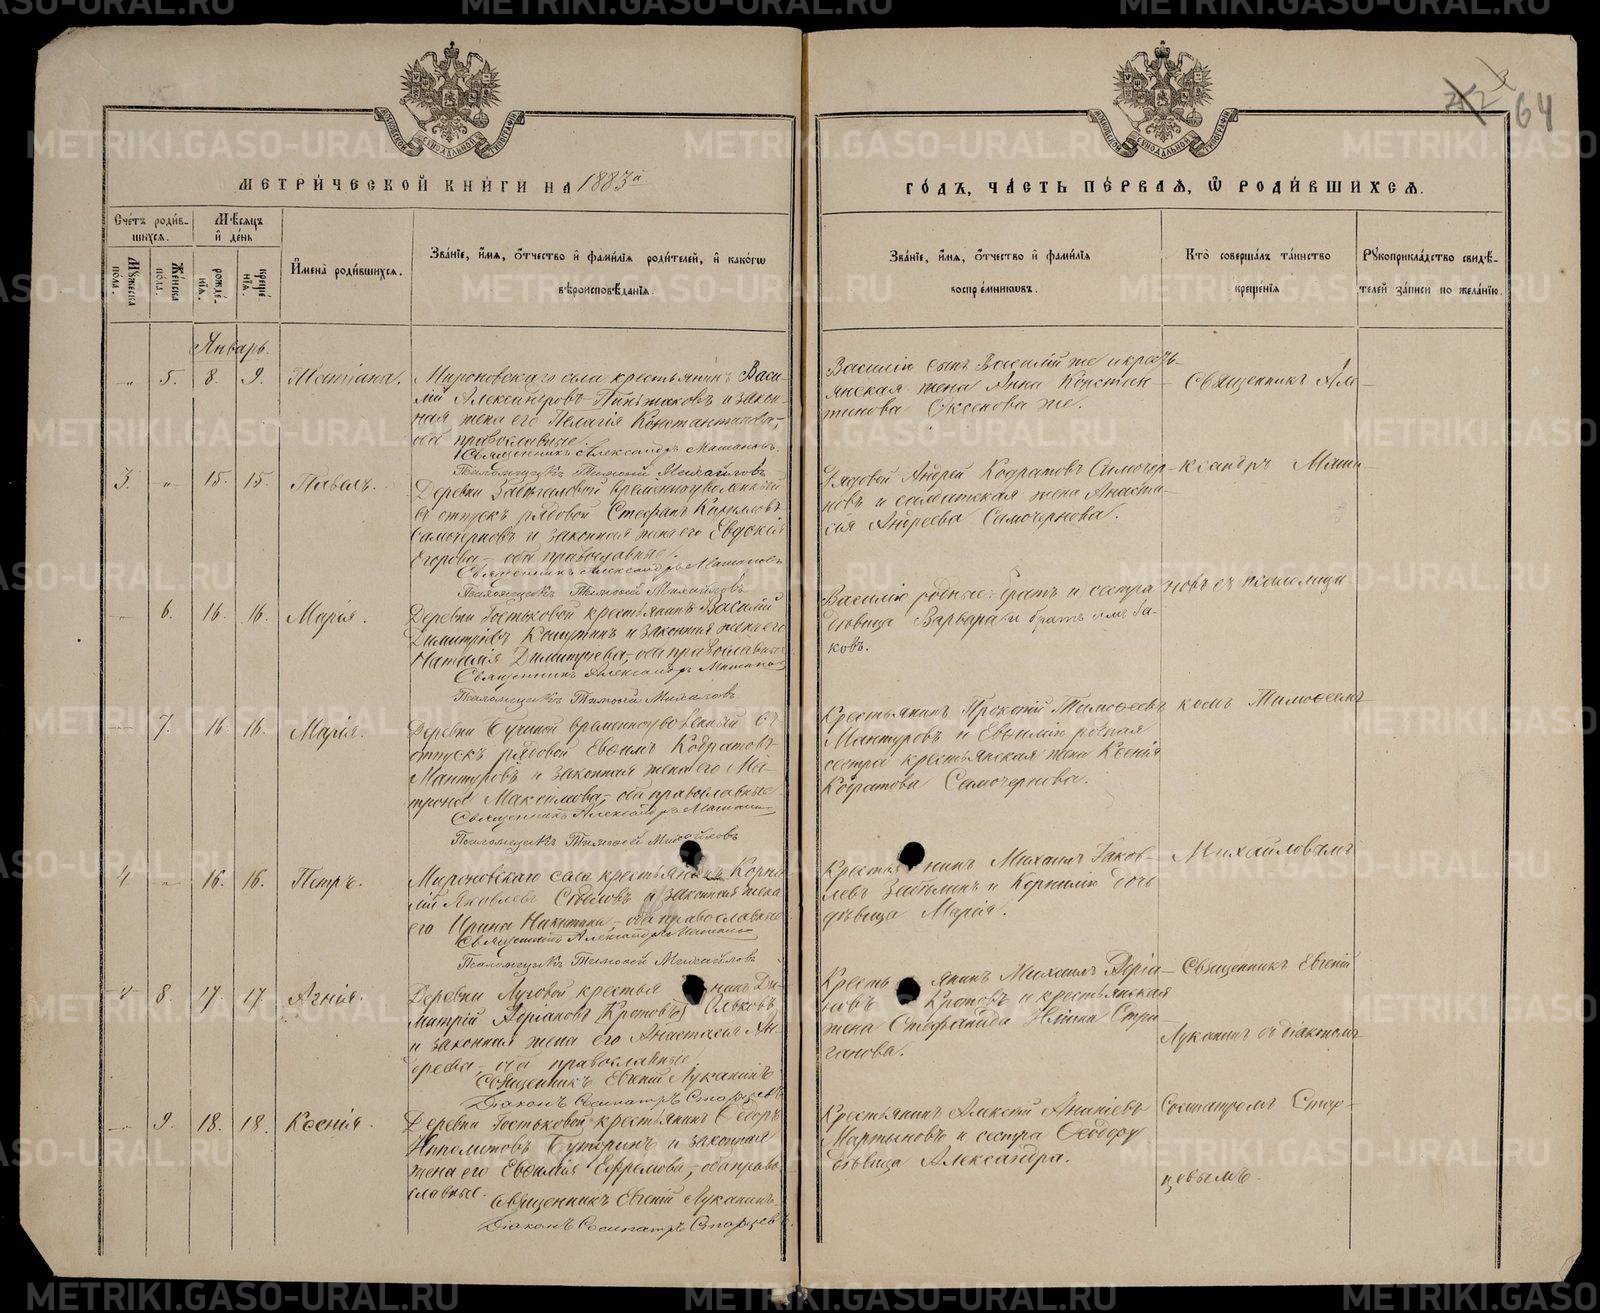 МЕТРИЧЕСКОЙ КНИГИ НА 1883й
ГОДЪ, ЧАСТЬ ПЕРВАЯ, Ѿ РОДИВШИХСЯ.
64
Счетъ родив-
шихся.
Мѣсяцъ
и день
Мужеска
пола.
Женска
пола.
рожде-
нія.
креще-
нія.
Имена родившихся.
Званіе, имя, отчество и фамилія родителей, и какогѡ
вѣроисповѣданія.
Званіе, имя, отчество и фамилія
воспріемниковъ.
Кто совершалъ таинство
крещенія
Рукоприкладство свидѣ-
телей записи по желанію.
Январь.
5. 8. 9. Татіана.
Мироновскаго села крестьянинъ Васи-
лій Александровъ и закон-
ная жена его Пелагія Константинова,
оба православные.
Священникъ Александръ
Псаломщикъ Тимофей Михайловъ
Василію сынъ Василій же и кресть-
янская жена Анна Констан-
тинова же.
Священникъ Але-
3. 15. 15. Павелъ.
Деревни временноуволенный
въ отпускъ рядовой Стефанъ Корниловъ
Самочерновъ и законная жена его Евдокія
Егорова, оба православные.
Священникъ Александръ
Псаломщикъ Тимофей Михайловъ
Рядовой Андрей Кодратовъ Самочер-
новъ и солдатская жена Анаста-
сія Андреева Самочернова.
ксандръ
6. 16. 16. Марія.
Деревни Гостьковой крестьянинъ Василій
Димитріевъ и законная жена его
Наталія Димитріева, оба православные
Священникъ Александръ
Псаломщикъ Тимофей Михайловъ
Василію родные: братъ и сестра
дѣвица Варвара и братъ Іа-
ковъ.
новъ съ псаломщи
7. 16. 16. Марія.
Деревни Бучиной временноуволенный въ
отпускъ рядовой Евѳимъ Кодратовъ
Мантуровъ и законная жена его Ма-
трона Максимова, оба православные
Священникъ Александръ
Псаломщикъ Тимофей Михайловъ
Крестьянинъ Прокопій Тимоѳеевъ
Мантуровъ и Евѳимію родная
сестра крестьянская жена Ксенія
Кодратова Самочернова.
комъ Тимоѳеемъ
4 16. 16. Петръ.
Мироновскаго села крестьянинъ Корни-
лій Яковлевъ и законная жена
его Ирина Никитина, оба православные
Священникъ Александръ
Псаломщикъ Тимофей Михайловъ
Крестьянинъ Михаилъ Іаков-
левъ и Корнилію дочь
дѣвица Марія.
Михайловымъ
8. 17. 17. Агнія.
Деревни Луговой крестьянинъ Ди-
митрій Адріановъ (Кротовъ)
и законная жена его Анастасія Ан-
дреева, оба православные.
Священникъ Евгеній Луканинъ
Діаконъ Сосипатръ Старцевъ
Крестьянинъ Михаилъ Адріа-
новъ Кротовъ и крестьянская
жена Стефанида Ильина Стри-
ганова.
Священникъ Евгеній
Луканинъ съ діакономъ
9. 18. 18. Ксенія.
Деревни Гостьковой крестьянинъ Ѳеодоръ
Ипполитовъ и законная
жена его Евѳимія Ефремова, оба право-
славные.
Священникъ Евгеній Луканинъ
Діаконъ Сосипатръ Старцевъ
Крестьянинъ Алексій Ананіевъ
Мартыновъ и сестра Ѳеодору
дѣвица Александра.
Сосипатромъ Стар-
цевымъ.
METRIKI.GASO-URAL.RU